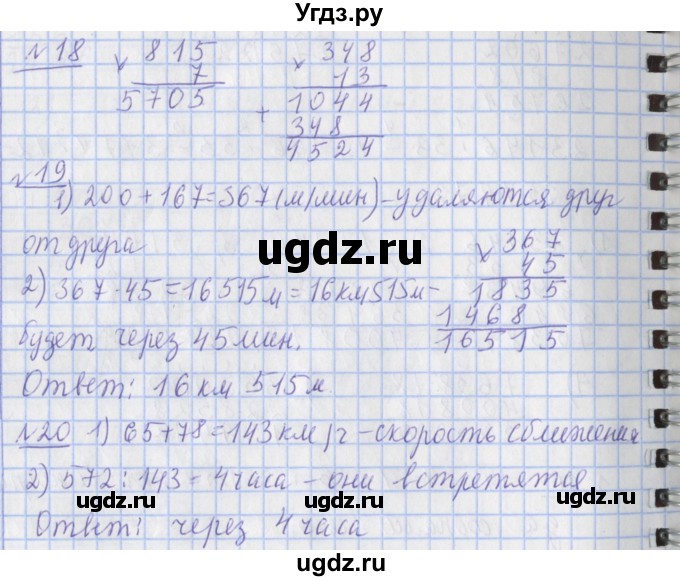 Угдз.ру
№18 × 815 × 348
7 13
5705 + 1044
348
4524
№19
1) 200 + 167 = 367 (м/мин) - удаляются друг
от друга × 367
45
2) 367 · 45 = 16515м = 16км515м - 1835
1468
будет через 45 мин. 16515
Ответ: 16 км 515 м
№20 1) 65+78=143км/ч - скорость сближения
2) 572 : 143 = 4 часа - они встретятся
Ответ: через 4 часа
ugdz.ru
ugdz.ru
ugdz.ru
ugdz.ru
ugdz.ru